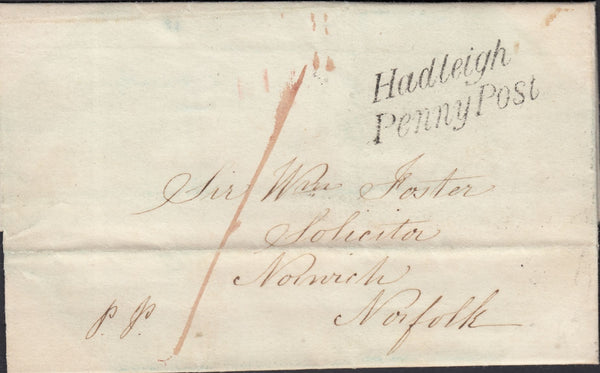 Hadleigh
Penny Post
Sir Wm Foster
Solicitor
Norwich
Norfolk
P. P.